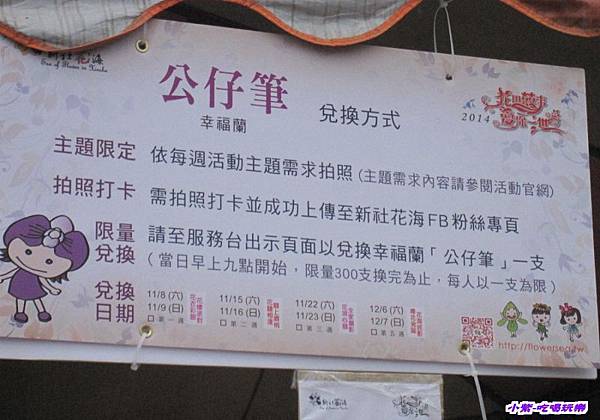 新社花海
Sea of Flowers in Xinshe
公仔筆
幸福蘭
兌換方式
2014
主題限定 依每週活動主題需求拍照(主題需求內容請參閱活動官網)
拍照打卡 需拍照打卡並成功上傳至新社花海FB粉絲專頁
限量兌換 請至服務台出示頁面以兌換幸福蘭「公仔筆」一支
(當日早上九點開始，限量300支換完為止，每人以一支為限)
兌換日期
11/8 (六)
11/9 (日)
□第一週
11/15 (六)
11/16 (日)
□第二週
11/22 (六)
11/23 (日)
□第三週
12/6 (六)
12/7 (日)
□第五週
http://flowersea.tw
新社花海
小紫-吃喝玩樂